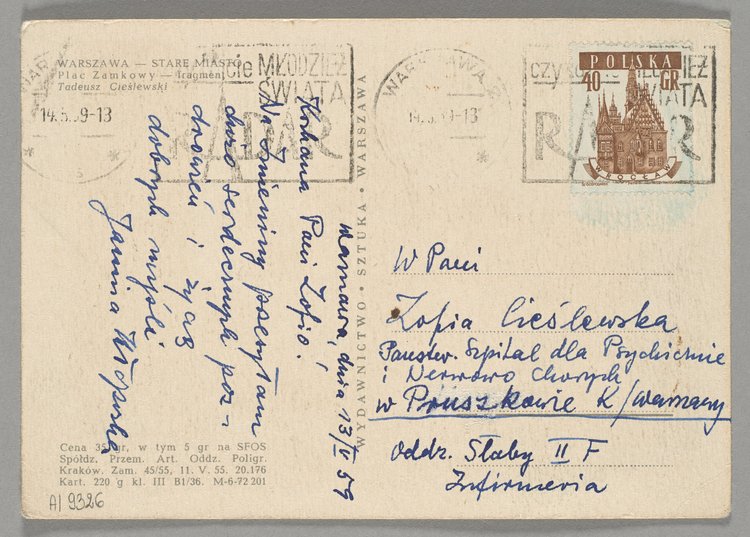 WARSZAWA — STARE MIASTO
Plac Zamkowy — fragment
Tadeusz Cieślewski
cie MŁODZIEŻ
ŚWIATA
RADAR
14.5.59-13
WARSZAWA 2
14.5.59-13
czytajcie MŁODZIEŻ
ŚWIATA
RADAR
POLSKA
40 GR
WROCŁAW
Warszawa, dnia 13/V 59
Kochana Pani Zofio!
Na Imieniny przesyłam
dużo serdecznych poz-
drowień i życzę
dobrych myśli
Janina
WYDAWNICTWO • SZTUKA • WARSZAWA
W Pani
Zofia Cieślewska
Państw. Szpital dla Psychicznie
i Nerwowo Chorych
w Pruszkowie K/Warszawy
Oddz. Słaby II F
Infirmeria
Cena 35 gr, w tym 5 gr na SFOS
Spółdz. Przem. Art. Oddz. Poligr.
Kraków. Zam. 45/55, 11. V. 55. 20.176
Kart. 220 g kl. III B1/36. M-6-72 201
AI 9326